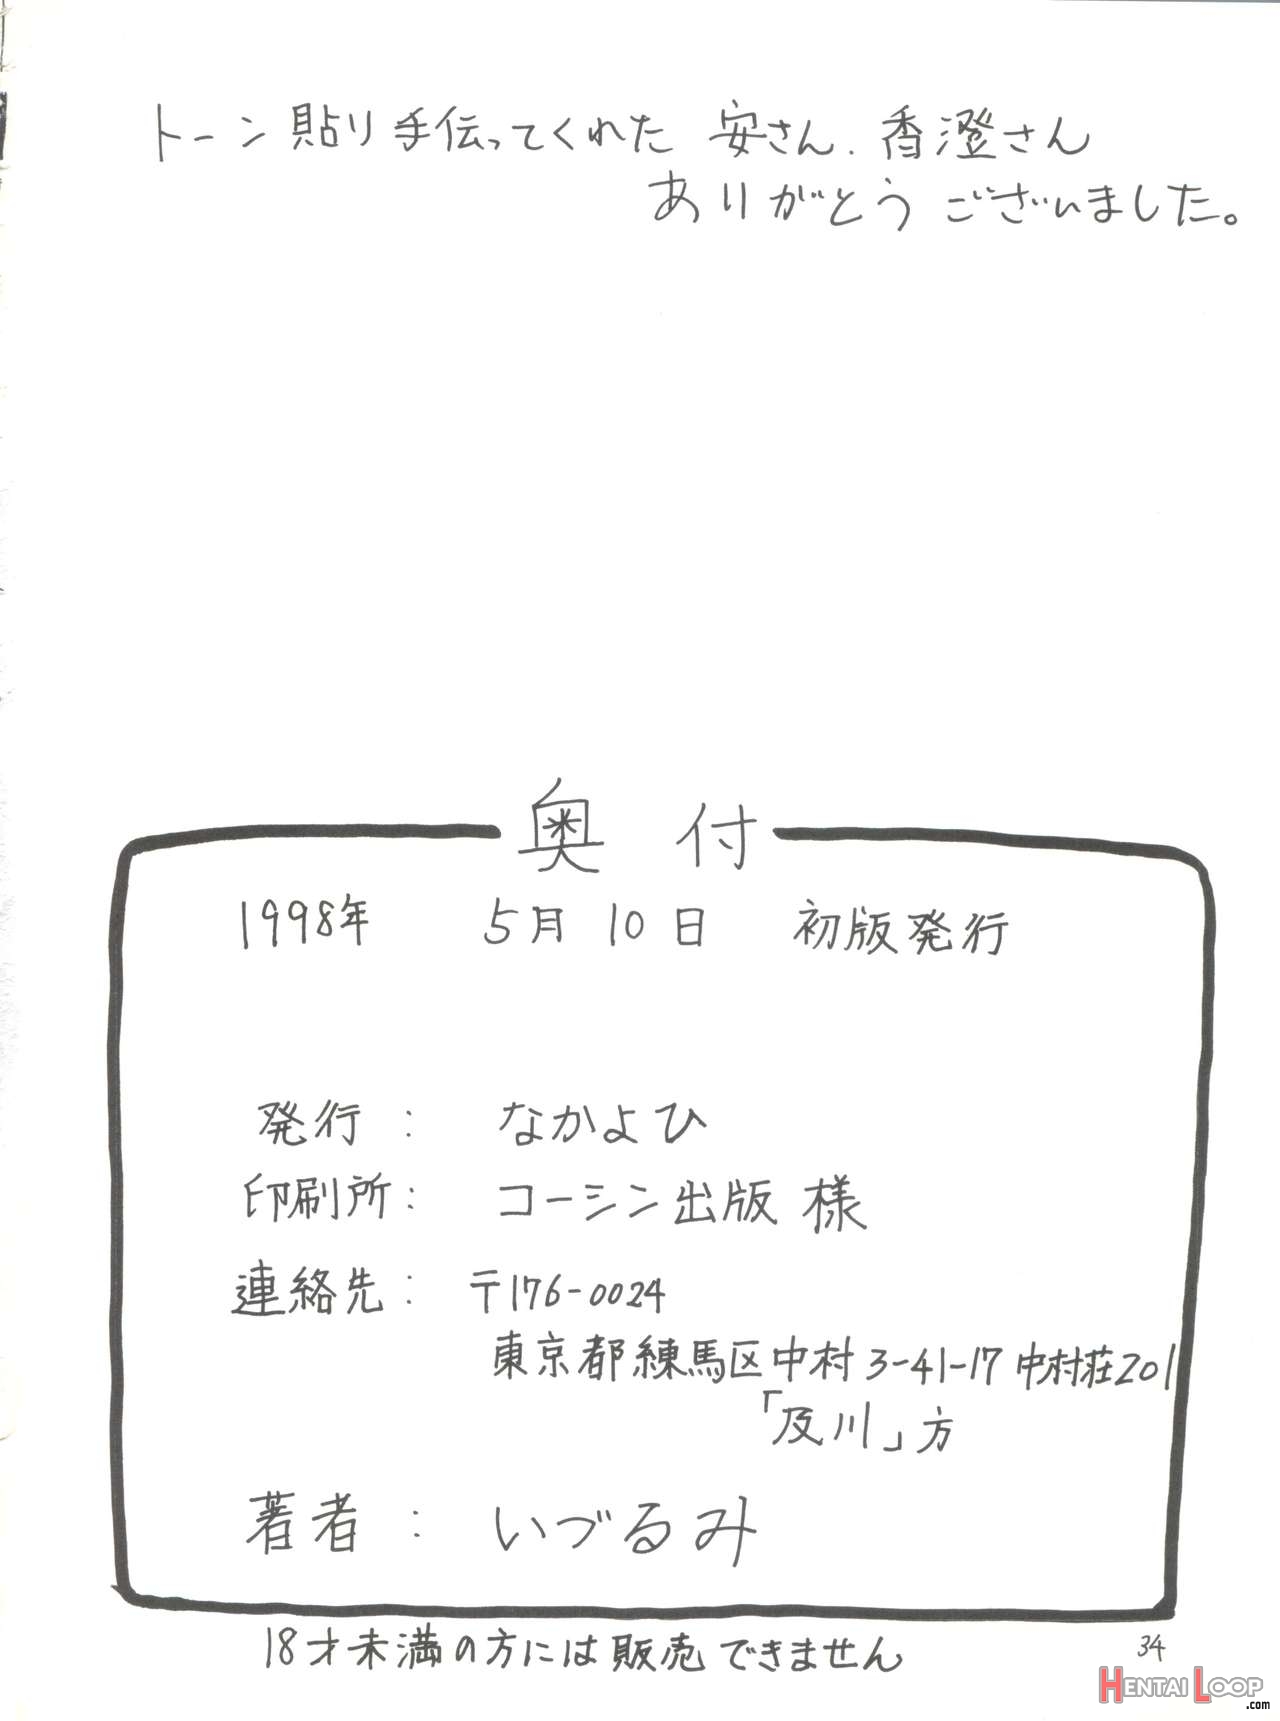 トーン貼り手伝ってくれた 安さん、香澄さん
ありがとうございました。
奥付
1998年 5月10日 初版発行
発行： なかよひ
印刷所： コーシン出版 様
連絡先： 〒176-0024
東京都練馬区中村3-41-17 中村荘201
「及川」方
著者： いづるみ
18才未満の方には販売できません
34
HENTAI LOOP
.com